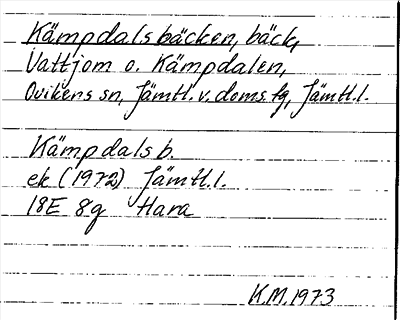 Kämpdalsbäcken, bäck,
Vattjom o. Kämpdalen,
Ovikens sn, Jämtl. v. doms. fg, Jämtl. l.
Kämpdalsb.
ek (1972) Jämtl. l.
18E 8g Hara
K.M. 1973